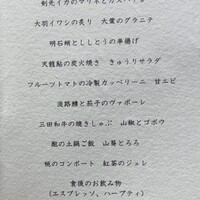 剣先イカのマリネとガスパチョ
大羽イワシの炙り 大葉のグラニテ
明石蛸とししとうの串揚げ
天龍鮎の炭火焼き きゅうりサラダ
フルーツトマトの冷製カッペリーニ 甘エビ
淡路鱧と茄子のヴァポーレ
三田和牛の焼きしゃぶ 山椒とゴボウ
鮑の土鍋ご飯 山葵とろろ
桃のコンポート 紅茶のジュレ
食後のお飲み物
(エスプレッソ、ハーブティ)